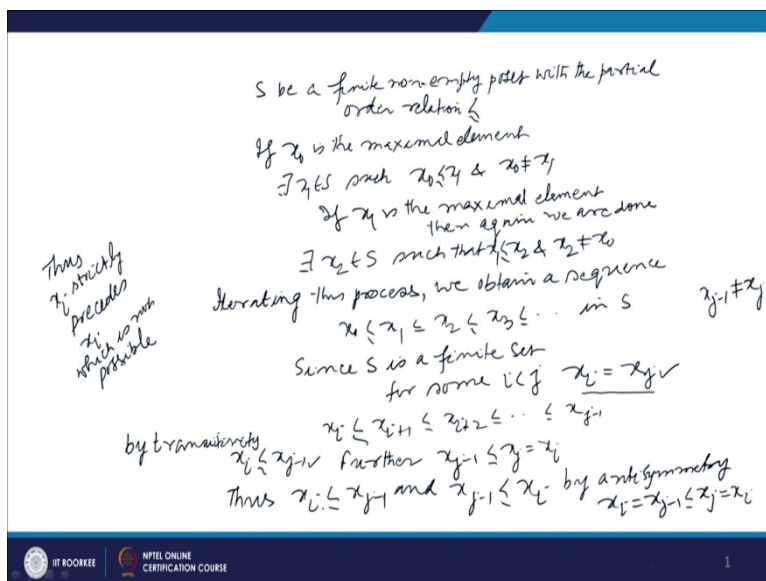 S be a finite non-empty poset with the partial
order relation ≤
If x₀ is the maximal element
∃ x₁ ∈ S such x₀ ≤ x₁ & x₀ ≠ x₁
If x₁ is the maximal element
then again we are done
∃ x₂ ∈ S such that x₁ ≤ x₂ & x₂ ≠ x₀
Iterating this process, we obtain a sequence
x₀ ≤ x₁ ≤ x₂ ≤ x₃ ≤ ... in S
x_{j-1} ≠ x_j
Since S is a finite set
for some i<j x_i = x_j ✓
x_i ≤ x_{i+1} ≤ x_{i+2} ≤ ... ≤ x_{j-1}
by transitivity
x_i ≤ x_{j-1} ✓ Further x_{j-1} ≤ x_j = x_i
Thus x_i ≤ x_{j-1} and x_{j-1} ≤ x_i by antisymmetry
x_i = x_{j-1} ≤ x_j = x_i
Thus
x_i strictly
precedes
x_i
which is not
possible
IIT ROORKEE
NPTEL ONLINE
CERTIFICATION COURSE
1